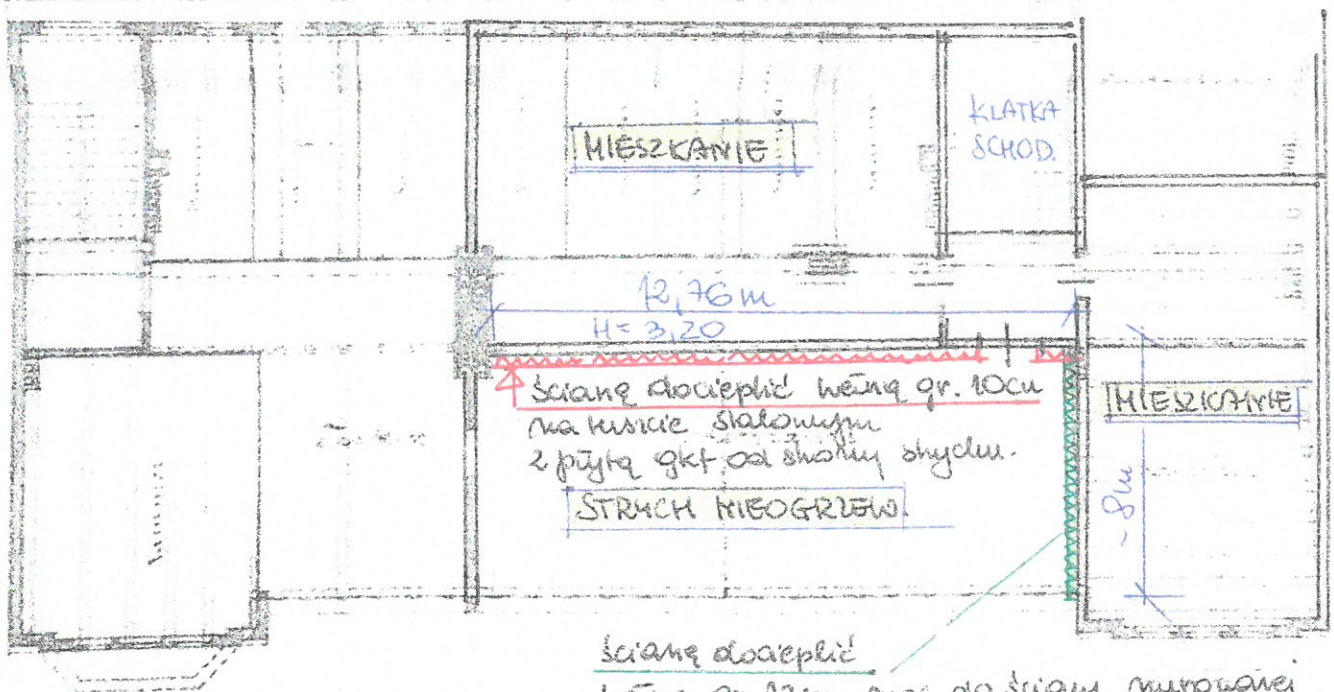 MIESZKANIE
KLATKA
SCHOD.
12,76 m
H = 3,20
ścianę docieplić wełną gr. 10cm
na ruszcie stalowym
z płytą gkf od strony strychu.
MIESZKANIE
STRYCH NIEOGRZEW.
~8m
ścianę docieplić
gr. ściany murowanej